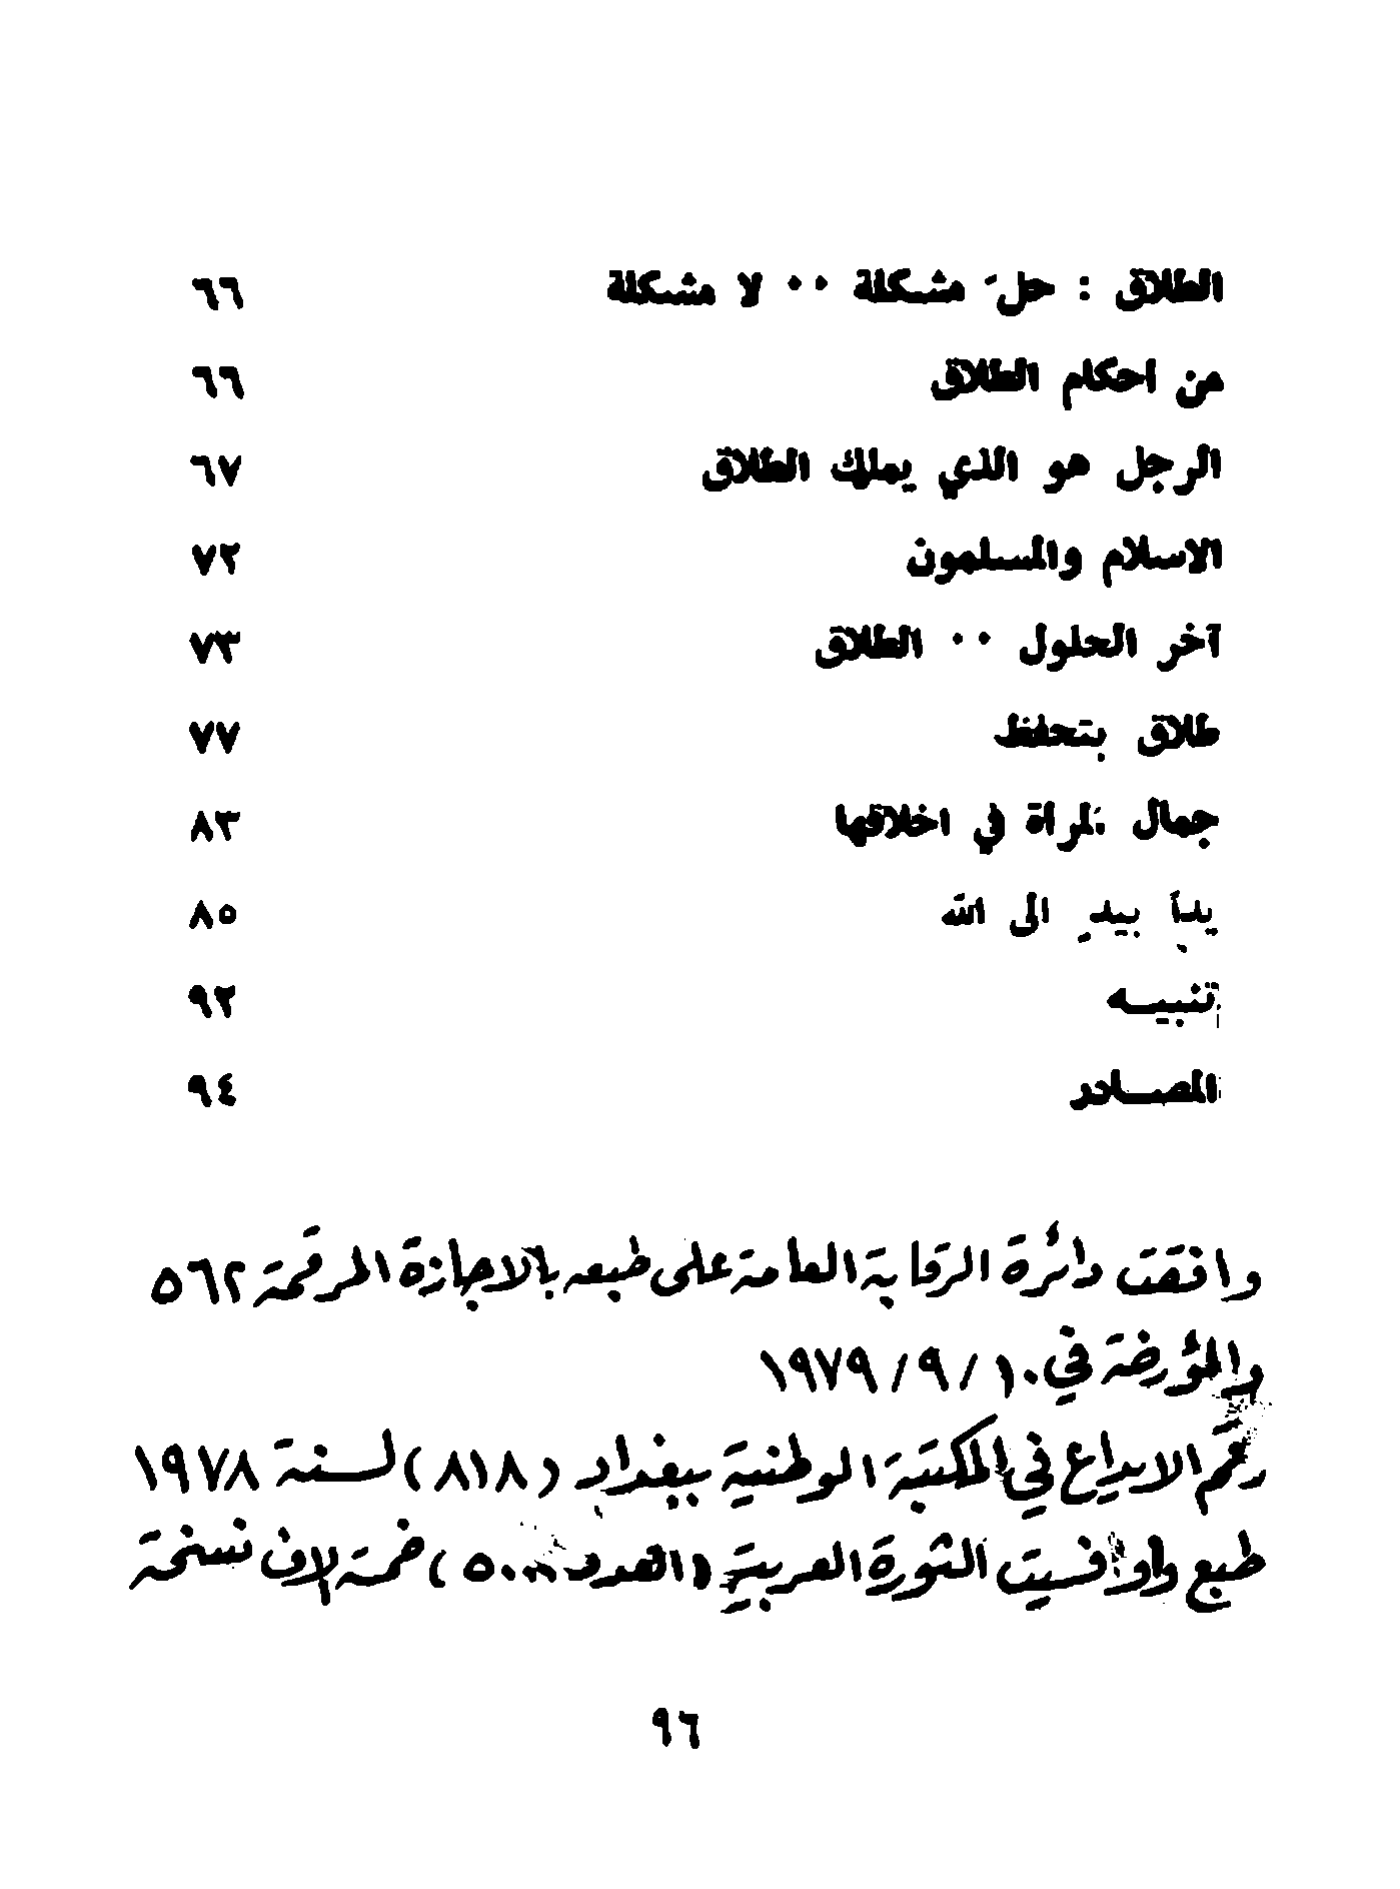 الطلاق : حلّ مشكلة ٠٠ لا مشكلة ٦٦
من احكام الطلاق ٦٦
الرجل هو الذي يملك الطلاق ٦٧
الاسلام والمسلمون ٧٢
آخر الحلول ٠٠ الطلاق ٧٣
طلاق بتحفظ ٧٧
جمال المرأة في اخلاقها ٨٣
يداً بيدٍ الى الله ٨٥
تنبيـــه ٩٢
المصـــادر ٩٤
وافقت دائرة الرقابة العامة على طبعه بالاجازة المرقمة ٥٦٢
والمؤرخة في ١٠ / ٩ / ١٩٧٩
رقم الايداع في المكتبة الوطنية ببغداد ( ٨١٨ ) لسنة ١٩٧٨
طبع واوفسيت الثورة العربية ( العدد ٥٠٠٠ ) خمسة الاف نسخة
٩٦